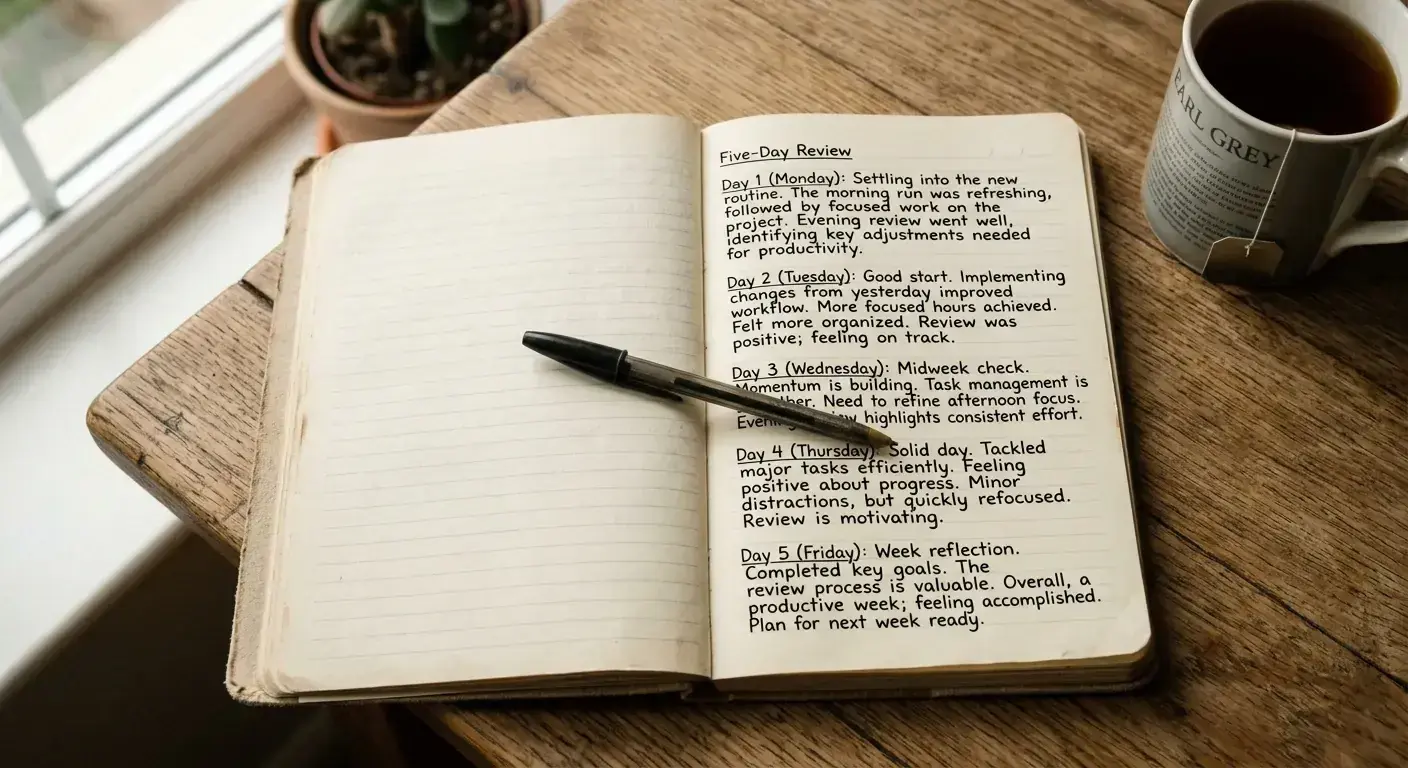 Five-Day Review
Day 1 (Monday): Settling into the new
routine. The morning run was refreshing,
followed by focused work on the
project. Evening review went well,
identifying key adjustments needed
for productivity.
Day 2 (Tuesday): Good start. Implementing
changes from yesterday improved
workflow. More focused hours achieved.
Felt more organized. Review was
positive; feeling on track.
Day 3 (Wednesday): Midweek check.
Momentum is building. Task management is
Need to refine afternoon focus.
highlights consistent effort.
Day 4 (Thursday): Solid day. Tackled
major tasks efficiently. Feeling
positive about progress. Minor
distractions, but quickly refocused.
Review is motivating.
Day 5 (Friday): Week reflection.
Completed key goals. The
review process is valuable. Overall, a
productive week; feeling accomplished.
Plan for next week ready.
EARL GREY